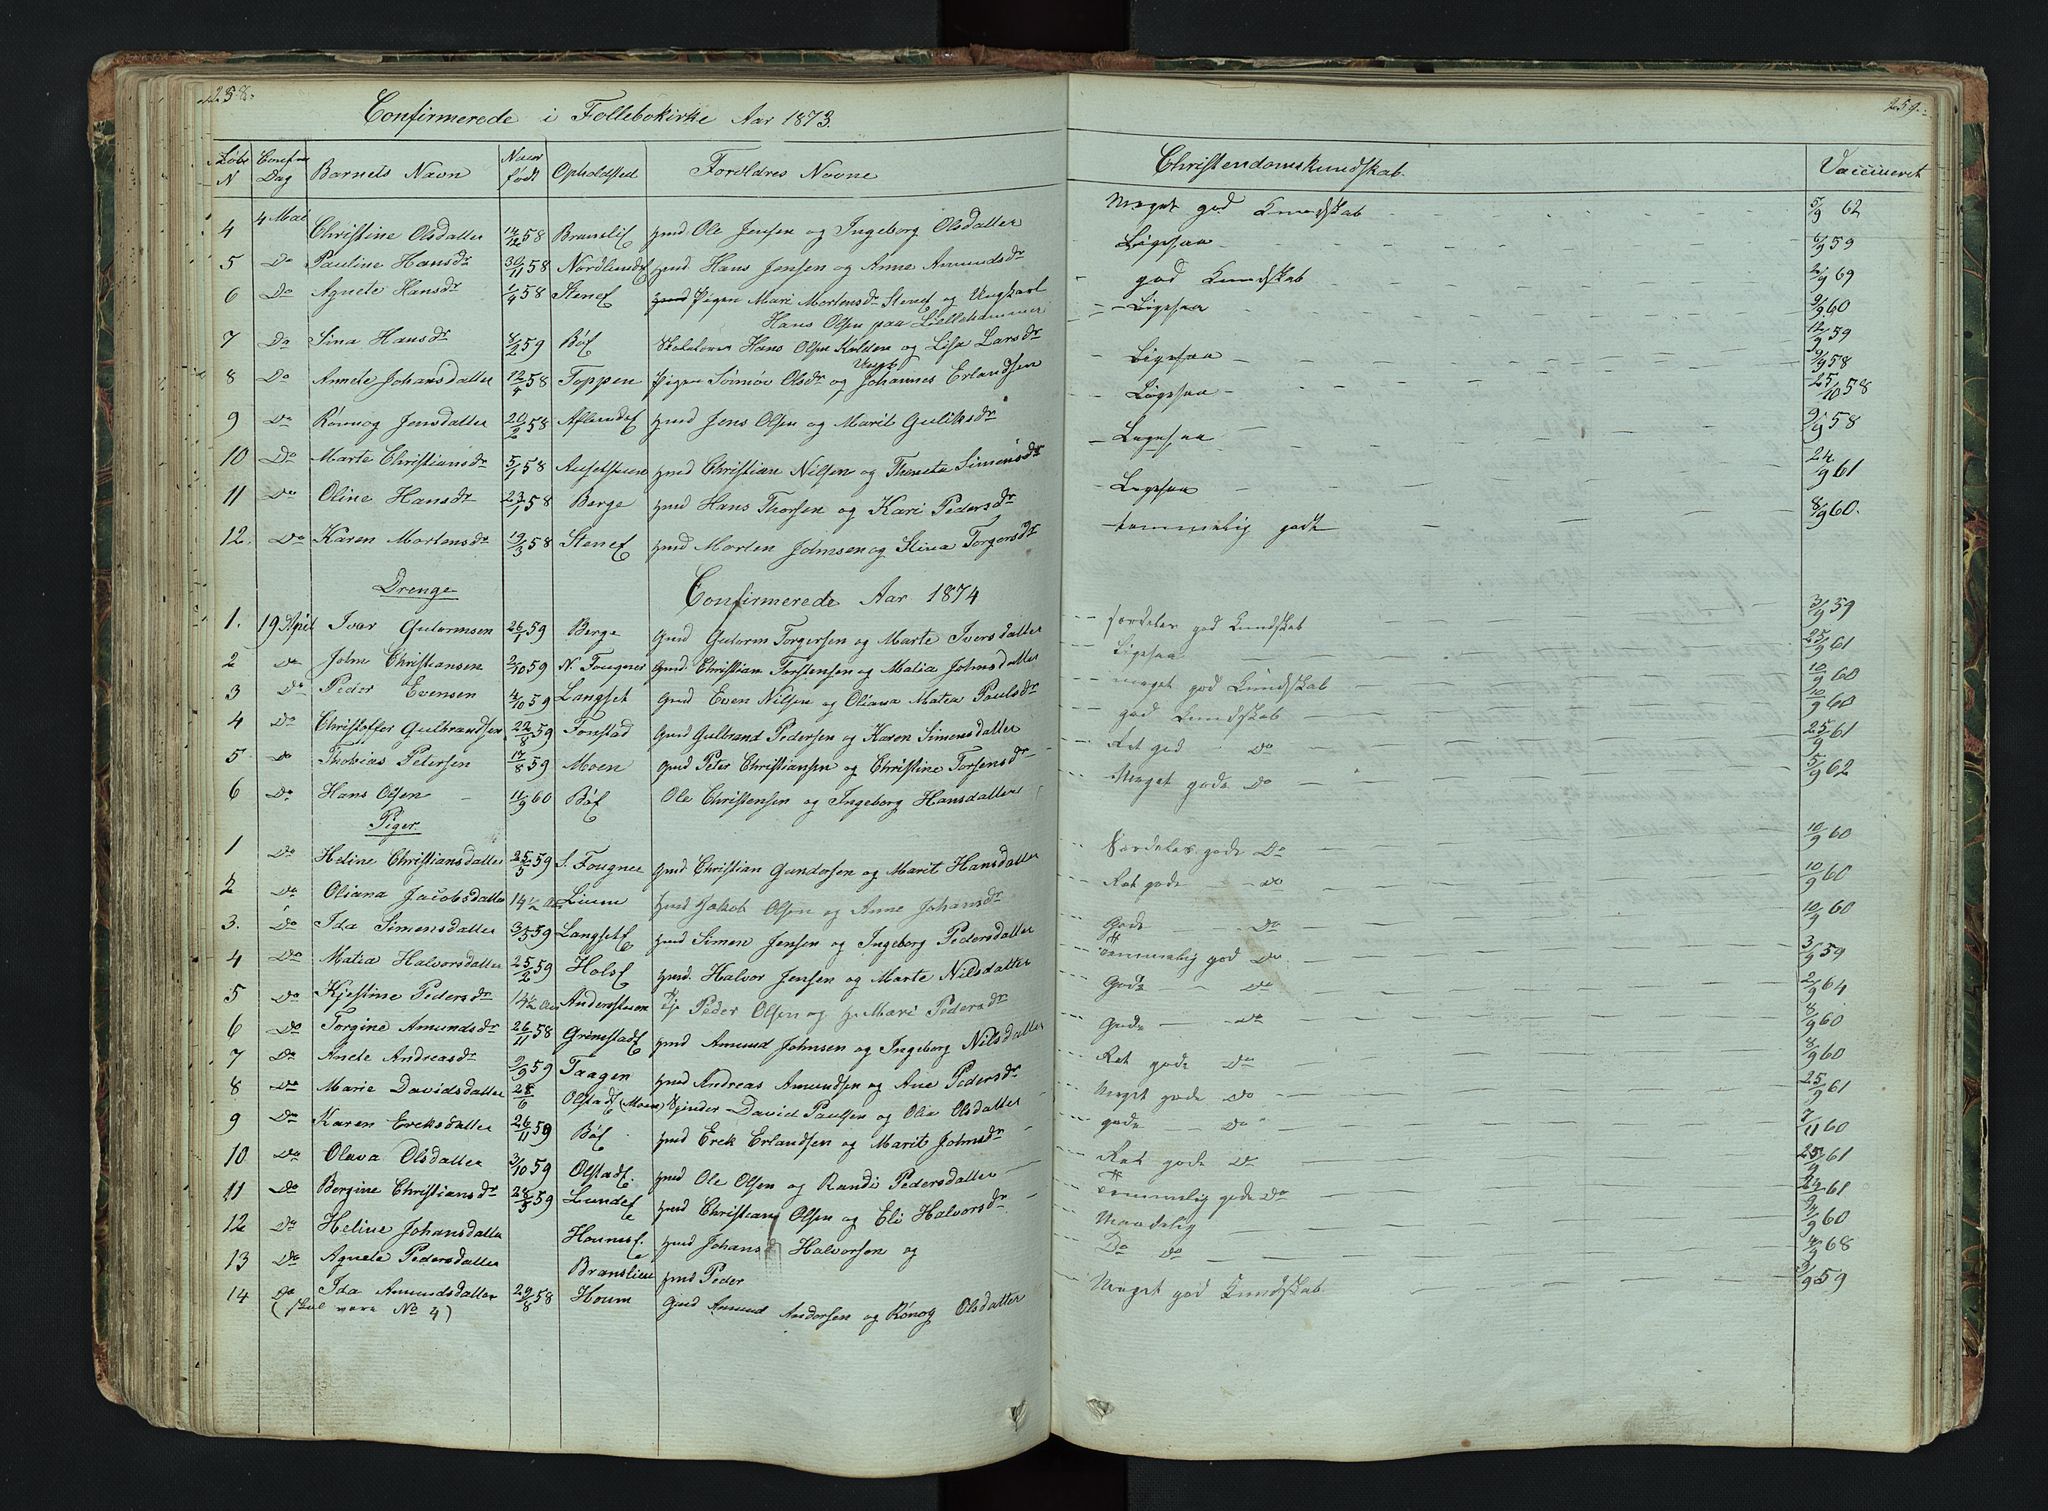 258.
Confirmerede i Follebokirke Aar 1873.
Løbs N Conf Dag Barnets Navn Naar født Opholdsted Foreldres Navne
4 4 Mai Christine Olsdatter 58 Hmd Ole Jensen og Ingeborg Olsdatter
5 Do Pauline Hansdr 30/11 58 Hmd. Hans Jensen og Anne Amundsdr
6 Do Agnete Hansdr 58 Stenef Pigen Mari Mortensdr Stenef og Ungkarl
Hans Olsen paa Lillehammer
7 Do Sina Hansdr 59 Bøf Skolelærer Hans Olsen Kulden og Lisa Larsdr
8 Do Annete Johansdatter 12/4 58 Toppen Pigen Olsdr og Johannes Erlandsen
9 Do Rønnog Jensdatter 20/2 58 Hmd Jens Olsen og Marit Guliksdr
10 Do Marte Christiansdr 5/1 58 Hmd Christian Nilsen og Thonete Simensdr
11 Do Oline Hansdr 23/1 58 Berge Hmd Hans Thorsen og Kari Pedersdr
12. Do Karen Mortensdr 19/3 58 Stenef Hmd Morten Johnsen og Stina Torgersdr
Drenge Confirmerede Aar 1874
1. 19 April Ivar Gulormsen 26/1 59 Berge Gmd Gulorm Torgersen og Marte Iversdatter
2 Do John Christiansen 2/10 59 N. Fougner Gmd. Christian Torstensen og Matia Johnsdatter
3 Do Peder Evensen 4/10 59 Langset Gmd Even Nilsen og Oliana Matea Paulsdr
4 Do Christoffer Gulbrandsen 22/8 59 Fonstad Gmd Gulbrand Pedersen og Karen Simensdatter
5 Do Thobias Petersen 59 Moen Gmd Peter Christiansen og Christine Torsensdr
6 Do Hans Olsen 11/9 60 Bøf Ole Christensen og Ingeborg Hansdatter
Piger
1 Do Heline Christiansdatter 25/5 59 S. Fougner Gmd Christian Gundersen og Marit Hansdatter
2 Do Oliana Jacobsdatter 14 1/2 Aar Hmd Jakob Olsen og Anne Johansdr
3. Do Ida Simensdatter 3/5 59 Langsetf Hmd Simen Jensen og Ingeborg Pedersdatter
4 Do Matia Halvorsdatter 25/2 59 Holsf Hmd. Halvor Jensen og Marte Nilsdatter
5 Do Kjestine Pedersdr 14 1/2 Aar Peder Olsen og H. Mari Pedersdr
6 Do Torgine Amundsdr 26/11 58 Grimstadf Hmd Amund Johnsen og Ingeborg Nilsdatter
7 Do Anete Andreasdr 9/9 59 Taagen Hmd Andreas Amundsen og Ane Pedersdr
8 Do Marie Davidsdatter 28/6 Olstadf (Moen) David Paulsen og Olia Olsdatter
9 Do Karen Ereksdatter 26/11 59 Bøf Hmd Erek Erlandsen og Marit Johnsdr
10 Do Olava Olsdatter 3/10 59 Olstadf. Hmd Ole Olsen og Randi Pedersdatter
11 Do Bergine Christiansdr 28/5 59 Lundef Hmd Christian Olsen og Eli Halvorsdr
12 Do Heline Johansdatter Hounesf. Hmd Johans Halvorsen og
13 Do Agnete Pedersdatter Branslien Hmd Peder
14 Do Ida Amundsdatter 29/8 58 Houm Gmd Amund Andersen og Rønog Olsdatter
(skal være No 4)
259.
Christendomskundskab. Vaccineret
Meget god Kundskab 5/9 62
Ligesaa 6/9 59
god Kundskab 69
Ligesaa 9/9 60
Ligesaa 59
Ligesaa 58
Ligesaa 25/10 58
Ligesaa 9/9 58
24/9 61
temmelig godt 8/9 60.
særdeles god Kundskab 3/9 59
Ligesaa 25/9 61
meget god Kundskab 10/9 60
god Kundskab 10/9 60
Ret god Do 25/9 61
Meget gode Do 5/9 62
Særdeles gode Do 10/9 60
Ret gode do 10/9 60
Gode Do 10/9 60
Temmelig god Do 3/9 59
Gode Do 2/9 64
Gode Do 8/9 60
Ret gode Do 8/9 60
Meget gode Do 25/9 61
gode Do 7/11 60
Ret gode Do 25/9 61
Temmelig gode Do 61
Maadelig 60
Do Do 4/9 68
Meget god Kundskab 3/9 59